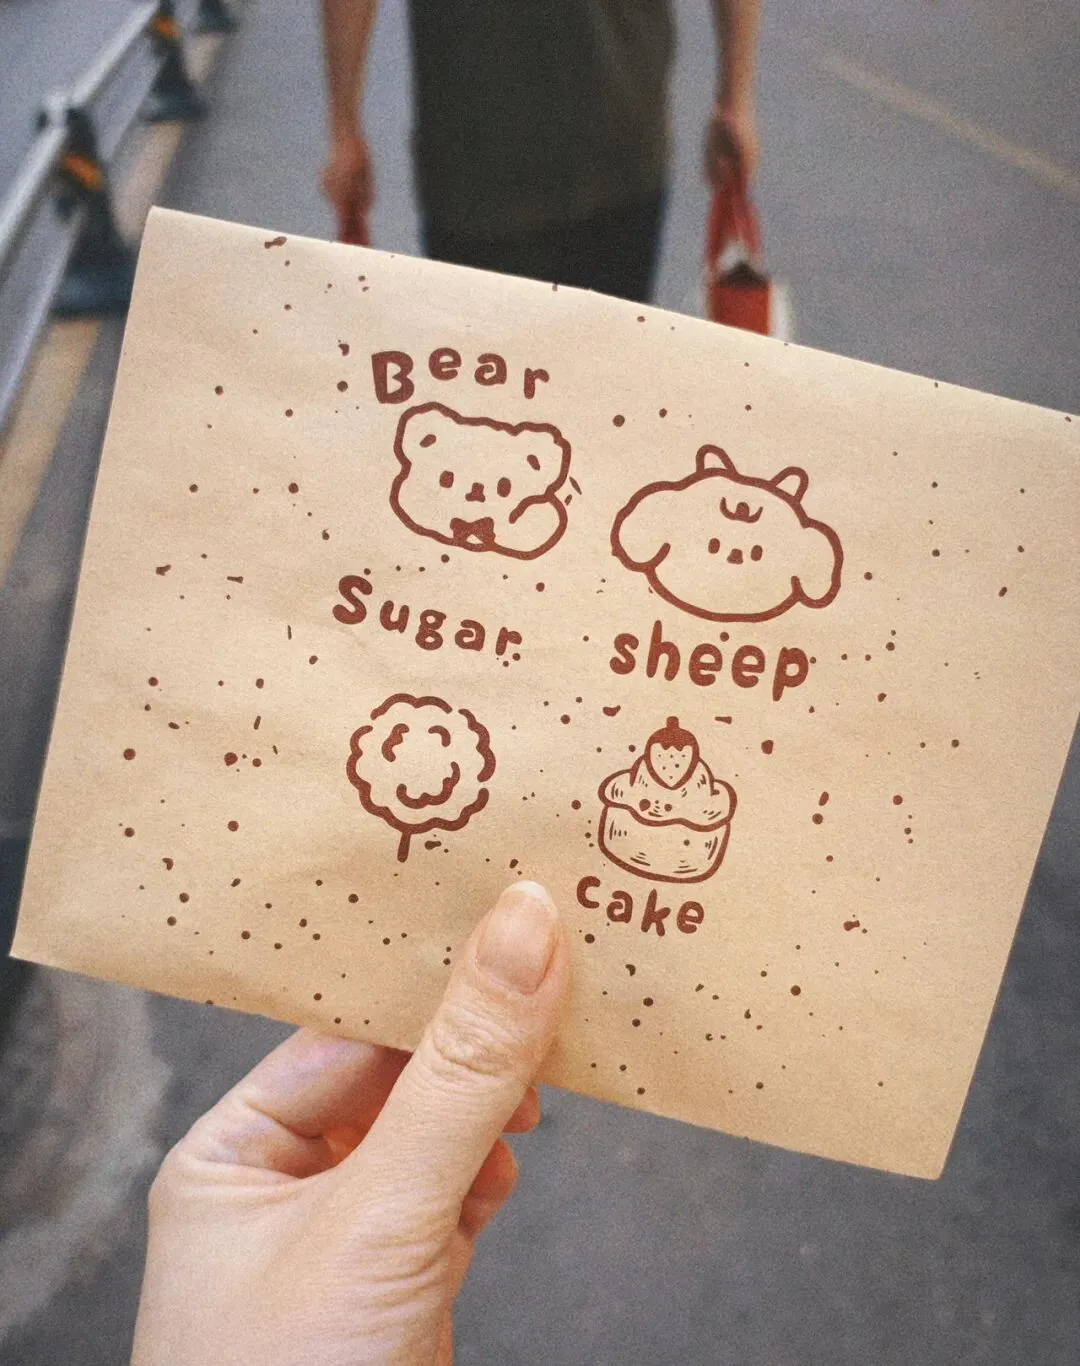 Bear
Sugar
sheep
cake